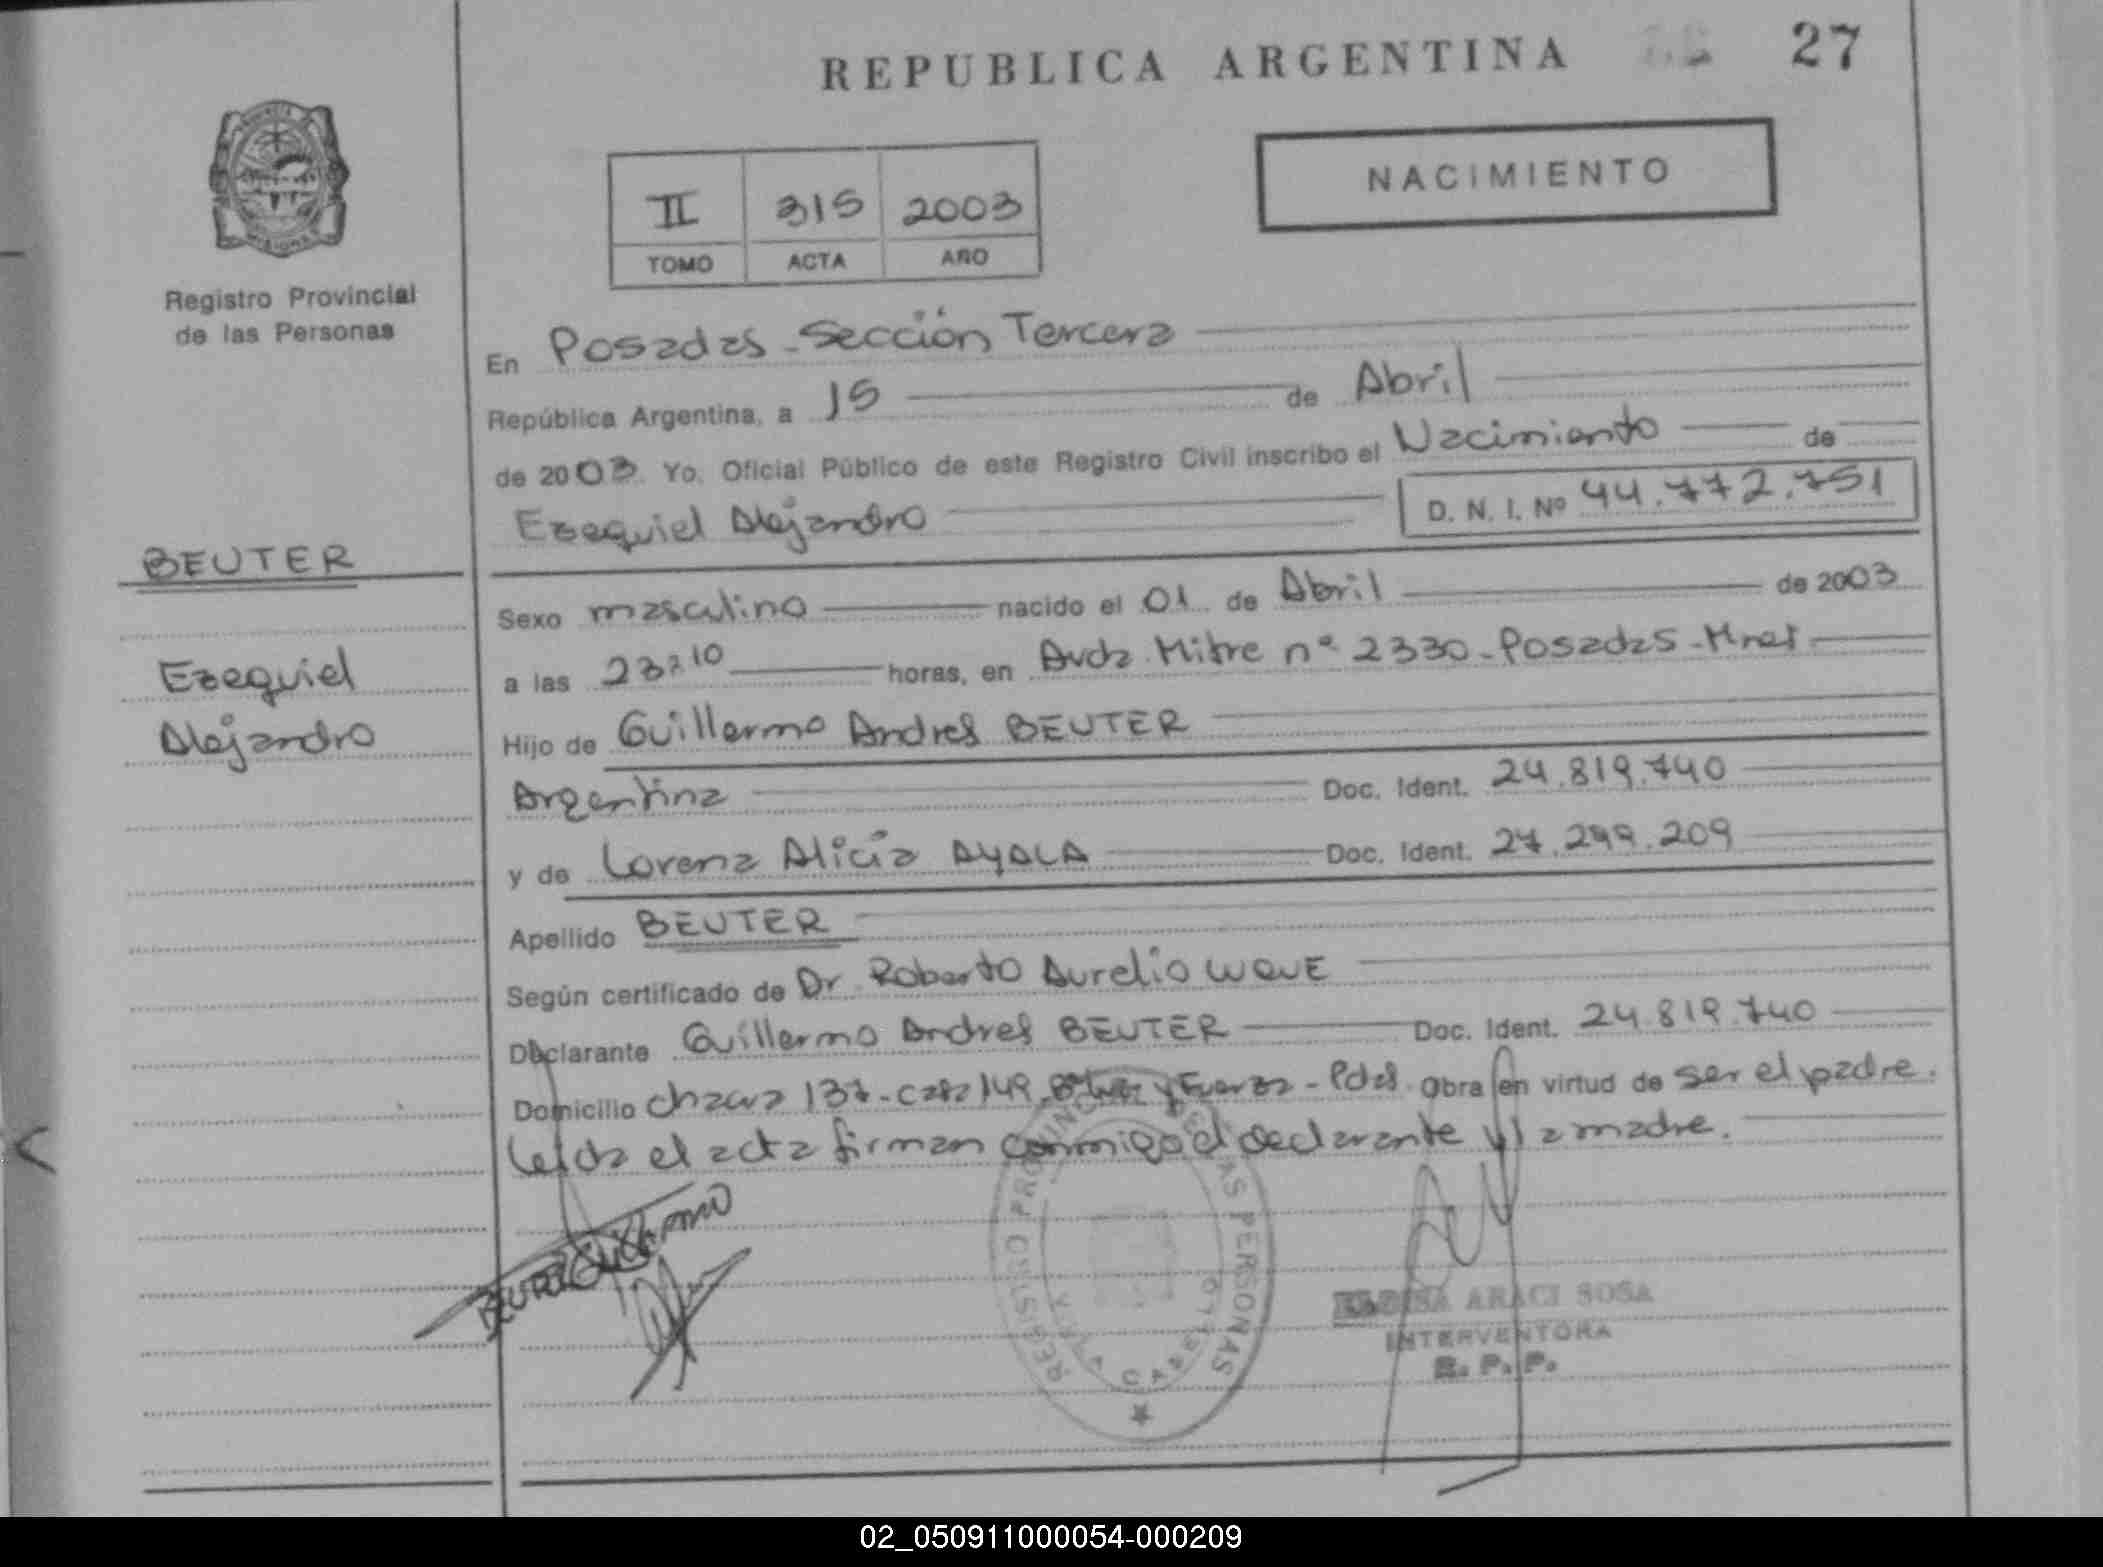 REPUBLICA ARGENTINA 27
NACIMIENTO
II 315 2003
TOMO ACTA AÑO
Registro Provincial
de las Personas
En Posadas - Sección Tercera
República Argentina, a 15 de Abril
de 2003. Yo, Oficial Público de este Registro Civil inscribo el Nacimiento de
Ezequiel Alejandro D. N. I. Nº 44.772.751
BEUTER
Ezequiel
Alejandro
Sexo masculino nacido el 01 de Abril de 2003
a las 23:10 horas, en Avda Mitre nº 2330 - Posadas - Mnes
Hijo de Guillermo Andres BEUTER
Argentina Doc. Ident. 24.819.740
y de Lorena Alicia AYALA Doc. Ident. 27.299.209
Apellido BEUTER
Según certificado de Dr. Roberto Aurelio
Declarante Guillermo Andres BEUTER Doc. Ident. 24.819.740
Domicilio chacra 137 - casa 149 - Pdas. Obra en virtud de ser el padre.
Leída el acta firman conmigo el declarante y la madre.
REGISTRO PROVINCIAL DE LAS PERSONAS
ARACI SOSA
INTERVENTORA
R. P. P.
02_050911000054-000209